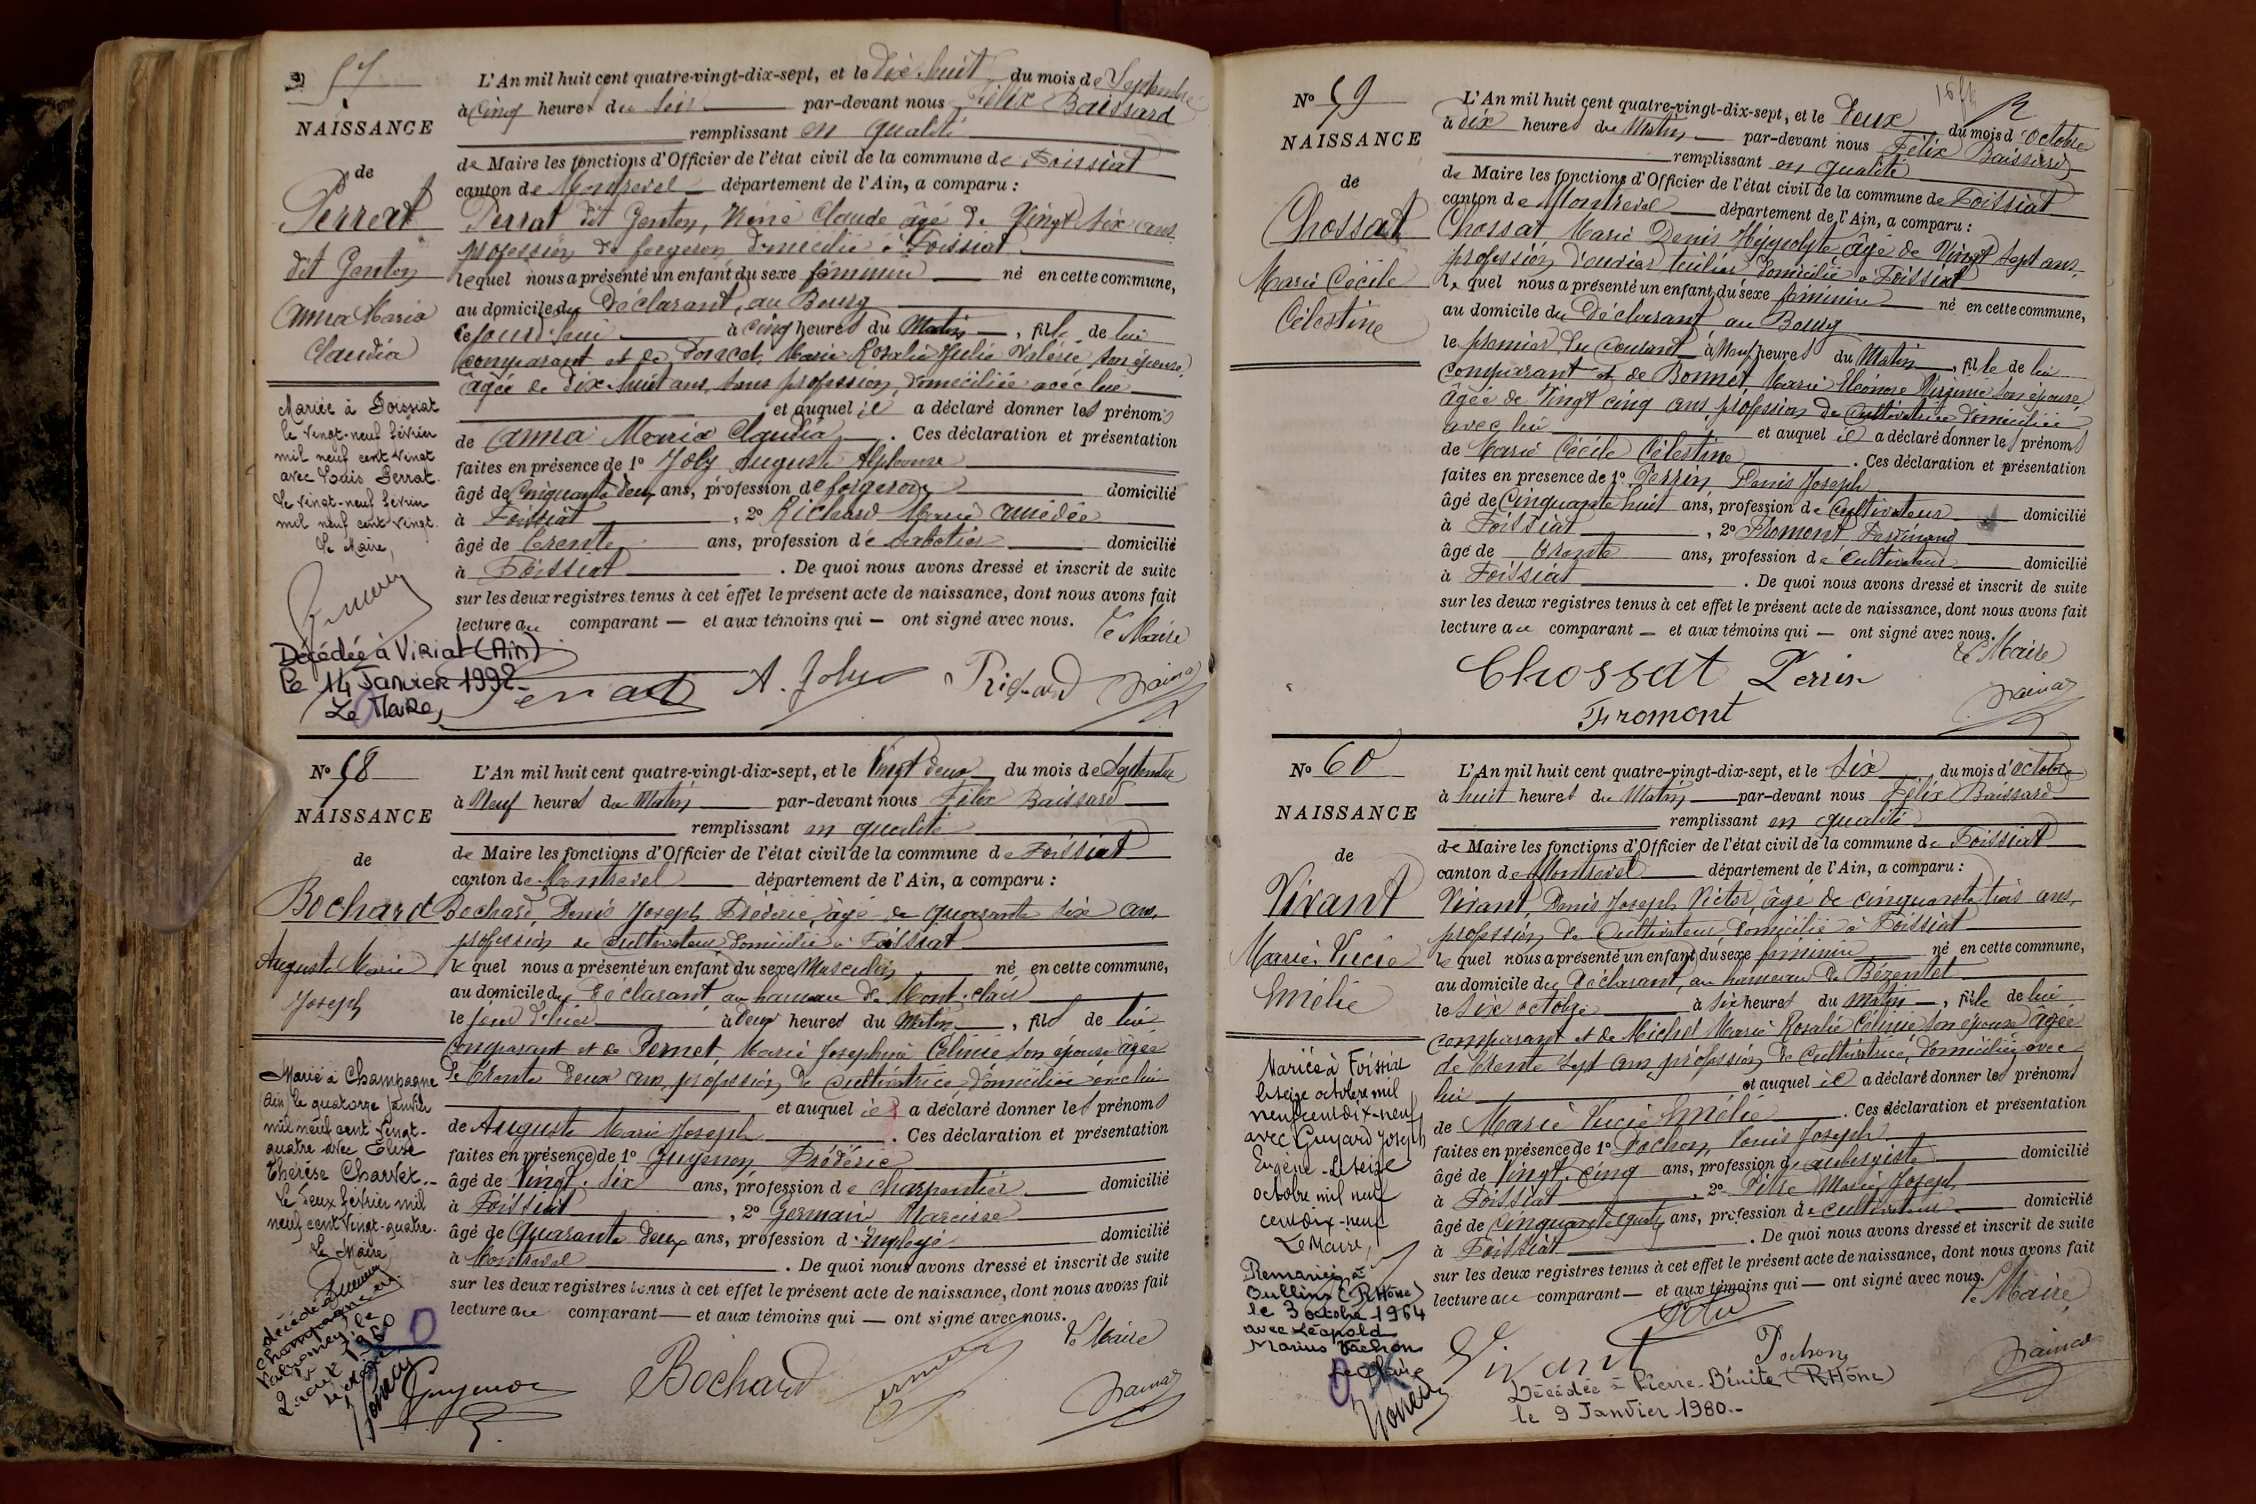 57
NAISSANCE
de
Perrat
dit Genton
Anna Maria
Claudia
Mariée à Foissiat
le vingt-neuf février
mil neuf cent vingt
avec Louis Perrat.
Le vingt-neuf février
mil neuf cent vingt.
Le Maire,
Décédée à Viriat (Ain)
le 14 Janvier 1992
Le Maire,
L'An mil huit cent quatre-vingt-dix-sept, et le dix huit du mois de Septembre
à cinq heures du soir par-devant nous Félix Baissard
remplissant en qualité
de Maire les fonctions d'Officier de l'état civil de la commune de Foissiat
canton de Montrevel département de l'Ain, a comparu :
Perrat dit Genton, René Claude âgé de Vingt six ans
profession de forgeron domicilié à Foissiat
lequel nous a présenté un enfant du sexe féminin né en cette commune,
au domicile du Déclarant, au Bourg
ce jourd'hui à cinq heures du Matin, fille de lui
comparant et de Marie Rosalie Julie Valérie son épouse,
âgée de dix huit ans, sans profession, domiciliée avec lui
et auquel il a déclaré donner les prénoms
de Anna Maria Claudia. Ces déclaration et présentation
faites en présence de 1º Joly Auguste Alphonse
âgé de Cinquante deux ans, profession de forgeron domicilié
à Foissiat, 2º Richard Marie Amédée
âgé de trente ans, profession de sabotier domicilié
à Foissiat. De quoi nous avons dressé et inscrit de suite
sur les deux registres tenus à cet effet le présent acte de naissance, dont nous avons fait
lecture au comparant — et aux témoins qui — ont signé avec nous.
Le Maire
Perrat A. Joly Richard
Nº 58
NAISSANCE
de
Bochard
Auguste Marie
Joseph
Marié à Champagne
Ain, le quatorze janvier
mil neuf cent vingt-
quatre avec Elise
Thérèse Charvet.-
Le deux février mil
neuf cent vingt-quatre.
Le Maire
décédé à
Champagne en
Valromey, le
L'An mil huit cent quatre-vingt-dix-sept, et le Vingt deux du mois de Septembre
à Neuf heures du Matin par-devant nous Félix Baissard
remplissant en qualité
de Maire les fonctions d'Officier de l'état civil de la commune de Foissiat
canton de Montrevel département de l'Ain, a comparu :
Bochard, Denis Joseph Frédéric, âgé de quarante six ans,
profession de cultivateur domicilié à Foissiat
lequel nous a présenté un enfant du sexe Masculin né en cette commune,
au domicile du Déclarant au hameau de Mont-clair
le jour d'hier à deux heures du Matin, fils de lui
comparant et de Pernet, Marie Josephine Célinie son épouse âgée
de trente deux ans, profession de cultivatrice domiciliée avec lui
et auquel il a déclaré donner les prénoms
de Auguste Marie Joseph. Ces déclaration et présentation
faites en présence de 1º Guyenon Frédéric
âgé de Vingt-six ans, profession de charpentier domicilié
à Foissiat, 2º Germain Narcisse
âgé de Quarante deux ans, profession d'employé domicilié
à Montrevel. De quoi nous avons dressé et inscrit de suite
sur les deux registres tenus à cet effet le présent acte de naissance, dont nous avons fait
lecture au comparant — et aux témoins qui — ont signé avec nous.
Le Maire
Guyenon Bochard
Nº 59
NAISSANCE
de
Chossat
Marie Cécile
Célestine
L'An mil huit cent quatre-vingt-dix-sept, et le Deux du mois d'octobre
à dix heures du Matin par-devant nous Félix Baissard
remplissant en qualité
de Maire les fonctions d'Officier de l'état civil de la commune de Foissiat
canton de Montrevel département de l'Ain, a comparu :
Chossat Marie Denis Hippolyte âgé de Vingt sept ans
profession d'ouvrier tuilier domicilié à Foissiat
lequel nous a présenté un enfant du sexe féminin né en cette commune,
au domicile du Déclarant au Bourg
le premier du courant à Neuf heures du Matin, fille de lui
comparant et de Bonnet, Marie Eléonore Virginie son épouse,
âgée de Vingt cinq ans, profession de cultivatrice domiciliée
avec lui et auquel il a déclaré donner les prénoms
de Marie Cécile Célestine. Ces déclaration et présentation
faites en présence de 1º Perrin Denis Joseph
âgé de Cinquante huit ans, profession de Cultivateur domicilié
à Foissiat, 2º Fromont Ferdinand
âgé de trente ans, profession de cultivateur domicilié
à Foissiat. De quoi nous avons dressé et inscrit de suite
sur les deux registres tenus à cet effet le présent acte de naissance, dont nous avons fait
lecture au comparant — et aux témoins qui — ont signé avec nous.
Le Maire
Chossat Perrin
Fromont
Nº 60
NAISSANCE
de
Vivant
Marie Lucie
Emélie
Mariée à Foissiat
le seize octobre mil
neuf cent dix-neuf
avec Guyard Joseph
Eugène. Le seize
octobre mil neuf
cent dix-neuf
Le Maire,
Remariée à
Oullins (Rhône)
le 3 octobre 1964
avec Léopold
Marius Vachon
Le Maire
L'An mil huit cent quatre-vingt-dix-sept, et le Six du mois d'octobre
à huit heures du Matin par-devant nous Félix Baissard
remplissant en qualité
de Maire les fonctions d'Officier de l'état civil de la commune de Foissiat
canton de Montrevel département de l'Ain, a comparu :
Vivant, Denis Joseph Victor, âgé de cinquante trois ans,
profession de Cultivateur domicilié à Foissiat
lequel nous a présenté un enfant du sexe féminin né en cette commune,
au domicile du Déclarant, au hameau de Bézentet
le six octobre à six heures du matin, fille de lui
comparant et de Michel Marie Rosalie Célinie son épouse âgée
de trente sept ans profession de cultivatrice, domiciliée avec
lui et auquel il a déclaré donner les prénoms
de Marie Lucie Emélie. Ces déclaration et présentation
faites en présence de 1º Pochon, Louis Joseph
âgé de Vingt-cinq ans, profession d'aubergiste domicilié
à Foissiat, 2º Marie Joseph
âgé de cinquante ans, profession de cultivateur domicilié
à Foissiat. De quoi nous avons dressé et inscrit de suite
sur les deux registres tenus à cet effet le présent acte de naissance, dont nous avons fait
lecture au comparant — et aux témoins qui — ont signé avec nous.
Le Maire
Vivant Pochon
Décédée à Pierre-Bénite (Rhône)
le 9 Janvier 1980.-